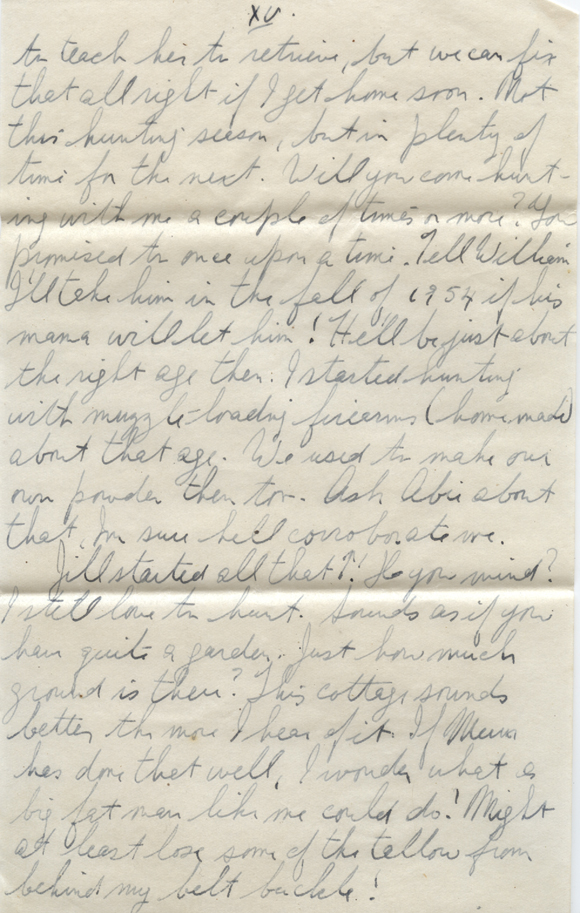 XV.
to teach her to retrieve, but we can fix
that all right if I get home soon. Not
this hunting season, but in plenty of
time for the next. Will you come hunt-
ing with me a couple of times or more? You
promised to once upon a time. Tell William
I'll take him in the fall of 1954 if his
mama will let him! He'll be just about
the right age then. I started hunting
with muzzle-loading firearms (home made)
about that age. We used to make our
own powder then too. Ask Abie about
that, I'm sure he'll corroborate me.
Jill started all that! Do you mind?
I still love to hunt. Sounds as if you
have quite a garden. Just how much
ground is there? This cottage sounds
better the more I hear of it. If
has done that well, I wonder what a
big fat man like me could do! Might
at least lose some of the tallow from
behind my belt buckle!